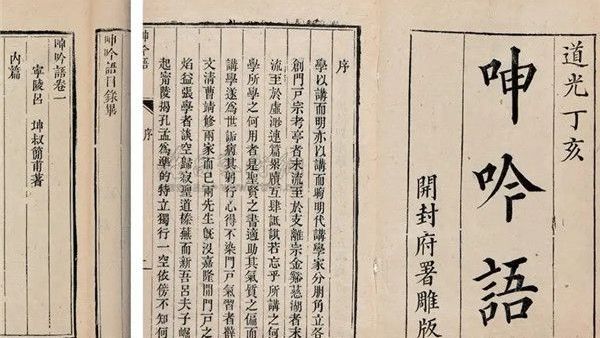 道光丁亥
呻吟語
開封府署雕版
序
學以講而明亦以講而晦明代講學家分朋角立各
創門戶宗考亭者末流至於支離宗金谿慈湖者末
流至於虛渺連篇累牘互肆詆諆若忘乎所講之何
學所學之何用者是聖賢之書適助其氣質之偏而
講學遂為世詬病其躬行心得不染門戶氣習者薛
文清曹靖修兩家而已兩先生既沒嘉隆間門戶之
焰益張學者談空歸寂聖道榛蕪而新吾呂夫子崛
起甯陵揭孔孟為準的特立獨行一空依傍不知何
呻吟語 序
呻吟語目錄畢
呻吟語卷一
甯陵呂 坤叔簡甫著
內篇